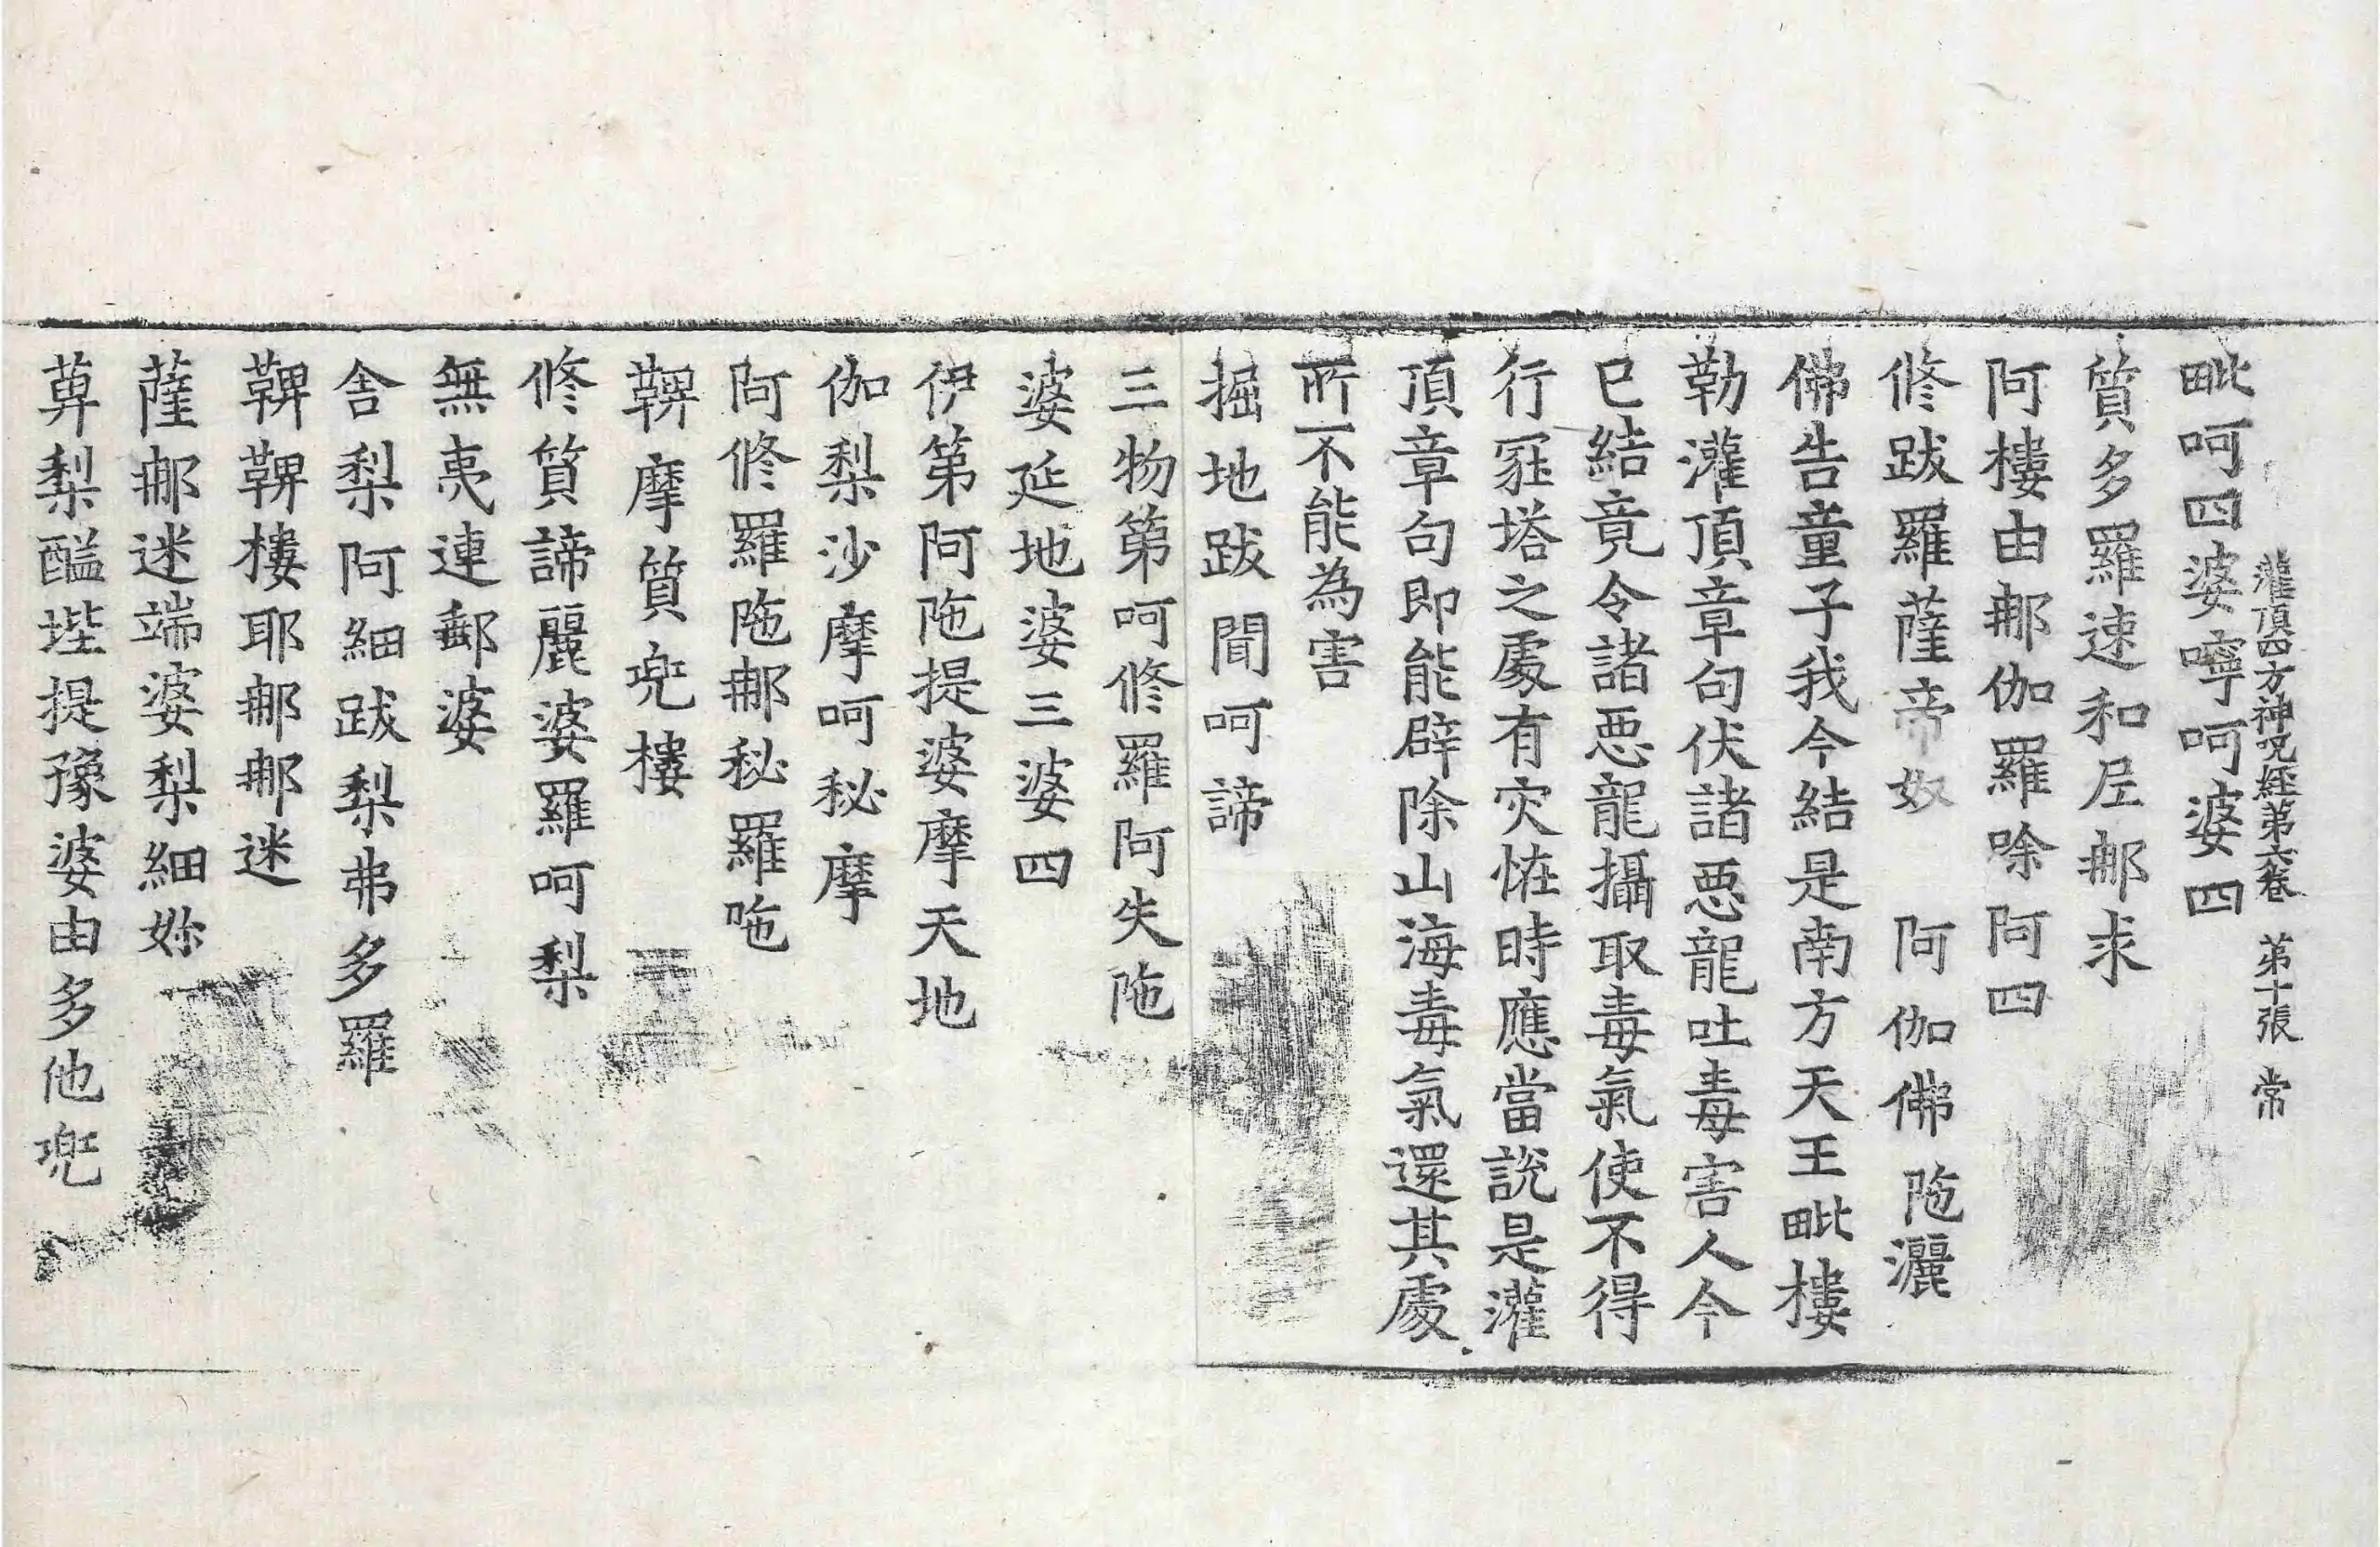 灌頂四方神呪經第六卷 第十張 常
毗呵四婆嚀呵婆四
質多羅速和𡰱郍求
阿樓由郍伽羅唋阿四
修跋羅薩帝奴 阿伽佛陁灑
佛告童子我今結是南方天王毗樓
勒灌頂章句伏諸惡龍吐毒害人今
已結竟令諸惡龍攝取毒氣使不得
行冢塔之處有灾恠時應當說是灌
頂章句即能辟除山海毒氣還其處
所不能為害
掘地跋閒呵諦
三物第呵修羅阿失陁
婆延地婆三婆四
伊第阿陁提婆摩天地
伽梨沙摩呵秘摩
阿修羅陁郍秘羅咃
鞞摩質兜樓
修質諦麗婆羅呵梨
無夷連郵婆
舍梨阿細跋梨弗多羅
鞞鞞樓耶郍郍迷
薩郍迷端婆梨細妳
萆梨醯埿提豫婆由多他兜